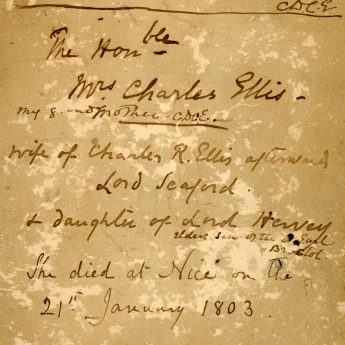 CDCE
The Hon^ble
Mrs Charles Ellis -
my grandmother CDCE.
wife of Charles R. Ellis afterwards
Lord Seaford.
& daughter of Lord Hervey
eldest son of the 4th Earl
Bristol.
She died at Nice on the
21st January 1803.